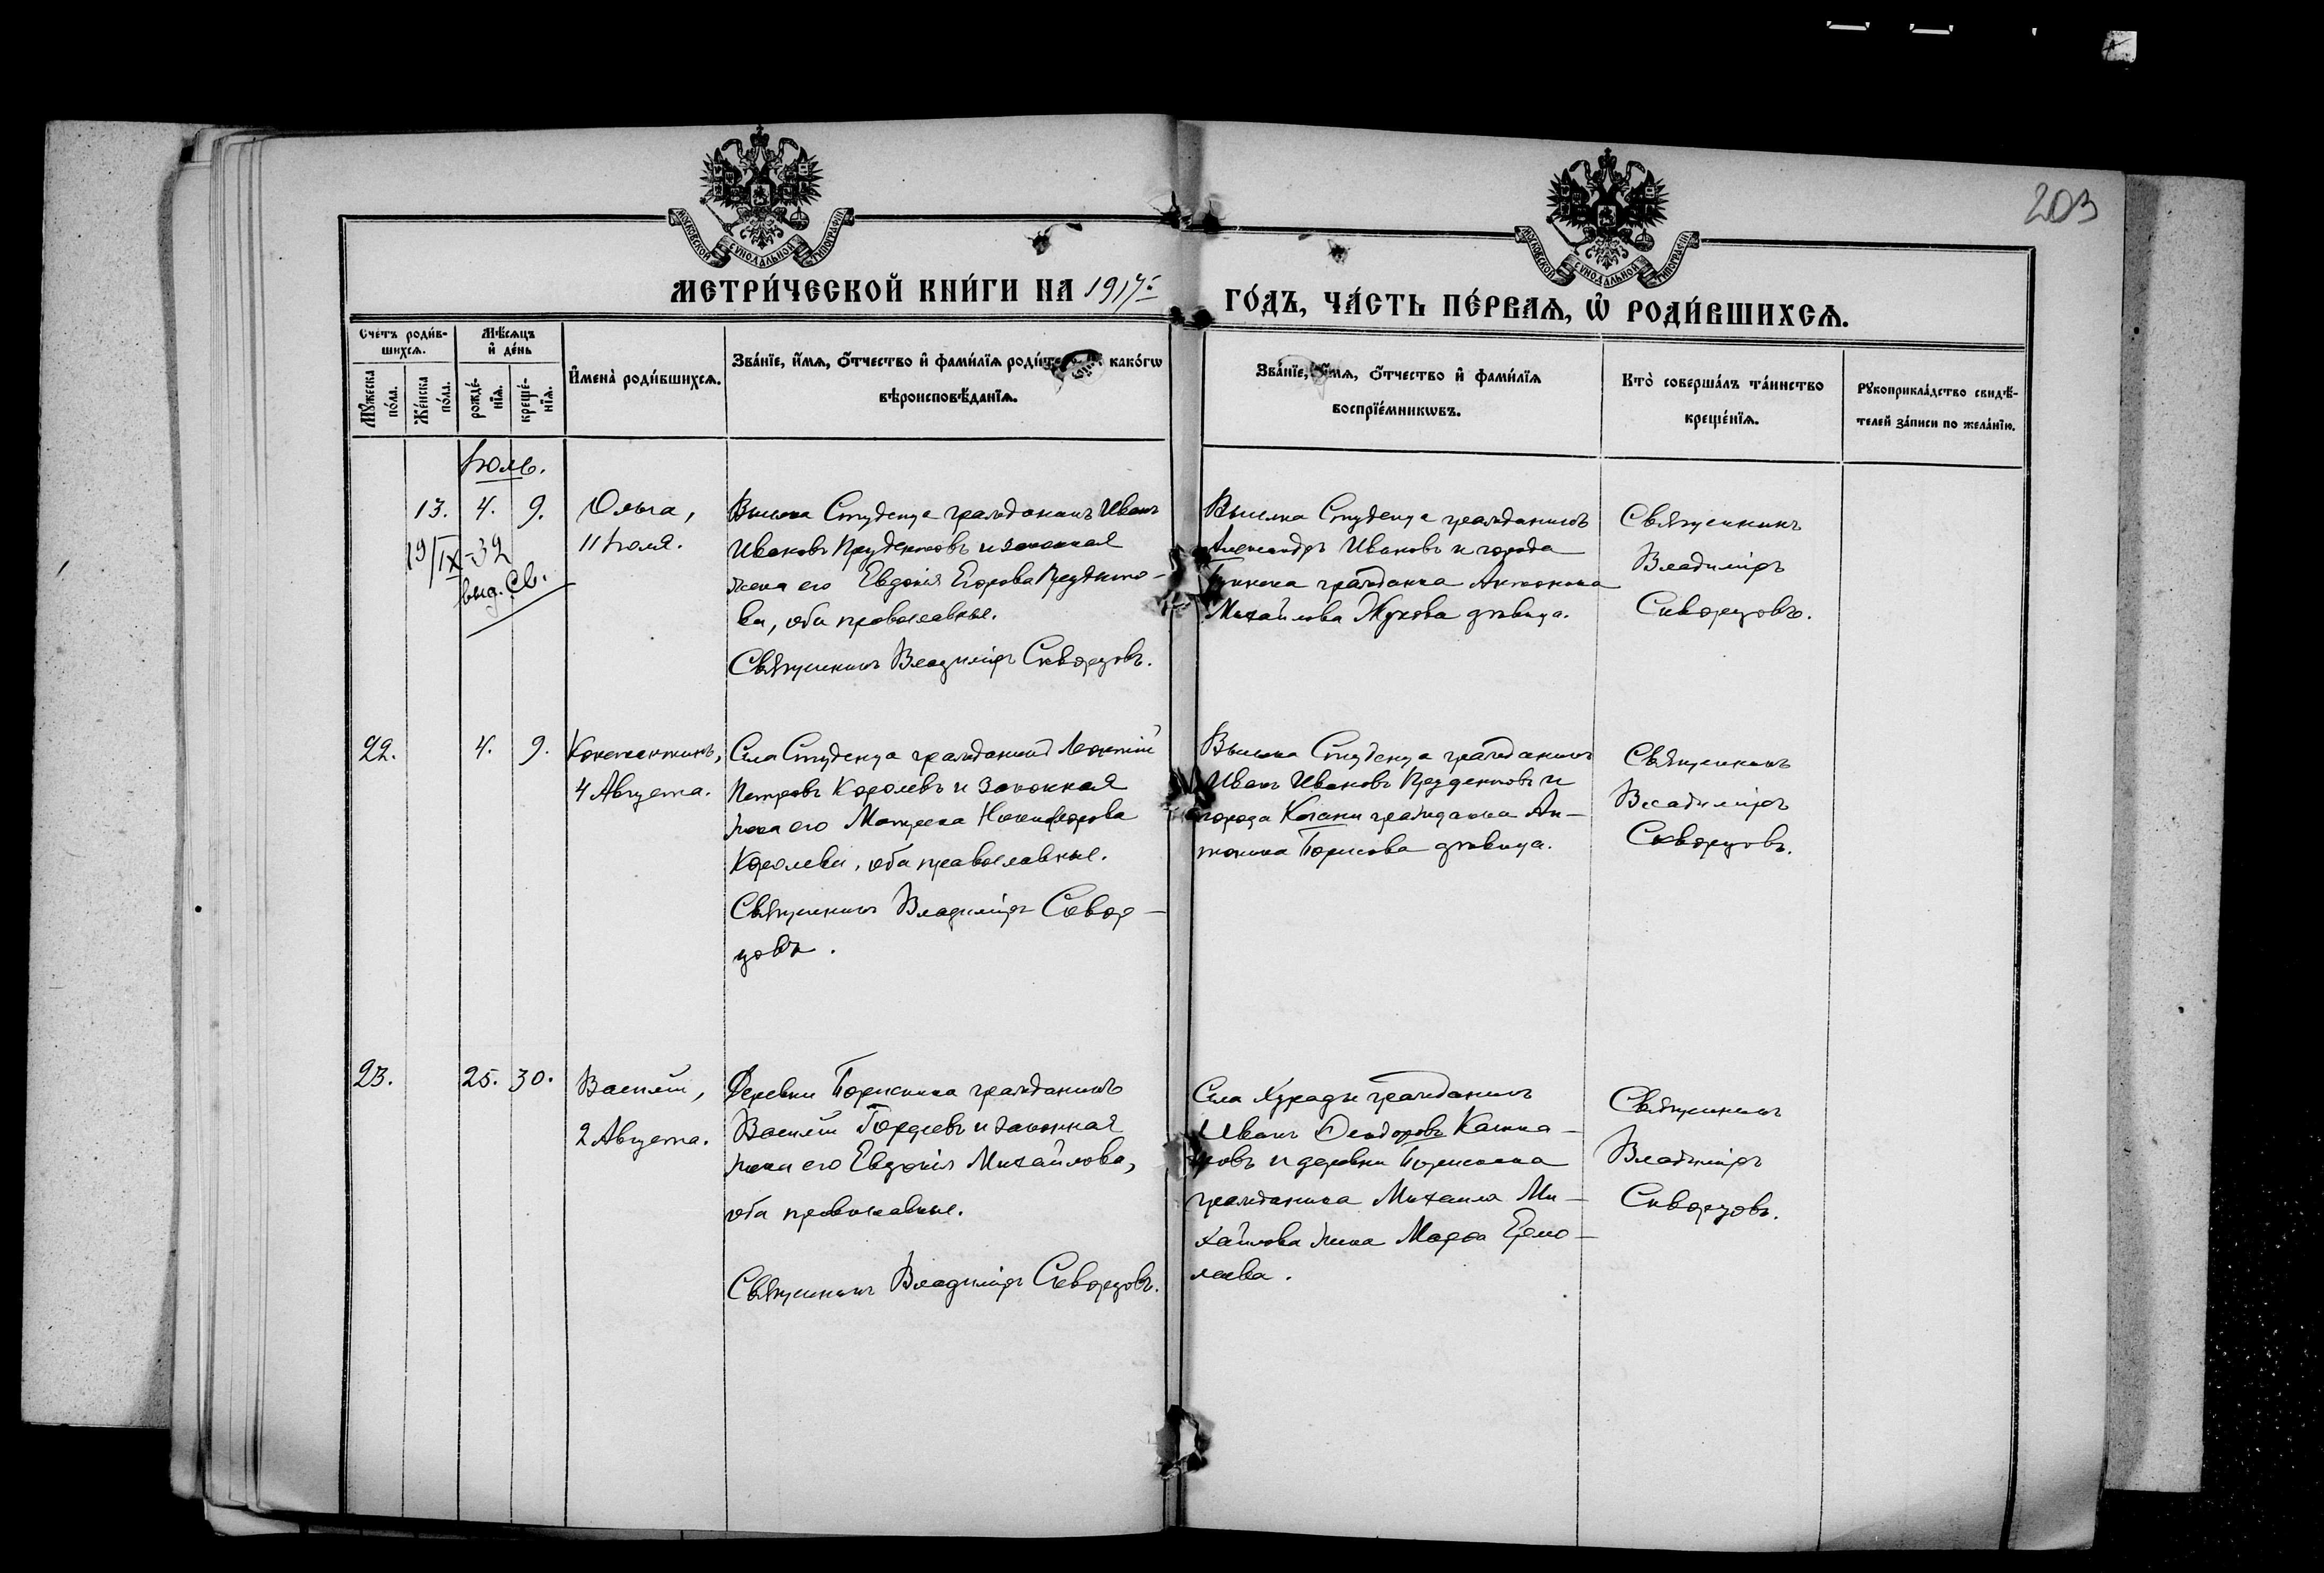 203
МОСКОВСКОЙ СѴНОДАЛЬНОЙ ТИПОГРАФІИ
МОСКОВСКОЙ СѴНОДАЛЬНОЙ ТИПОГРАФІИ
МЕТРИ́ЧЕСКОЙ КНИ́ГИ НА 1917-
ГО́ДЪ, ЧА́СТЬ ПЕ́РВАѦ, Ѡ҆ РОДИ́ВШИХСѦ.
Сче́тъ роди́в-
шихсѧ.
Мꙋ́жеска
по́ла.
Же́нска
по́ла.
Мѣ́сѧцъ
и҆ де́нь
рожде́-
нїѧ.
креще́-
нїѧ.
И҆мена̀ роди́вшихсѧ.
Зва́нїе, и҆́мѧ, ѻ҆́тчество и҆ фами́лїѧ како́гѡ
вѣроисповѣ́данїѧ.
Зва́нїе, и҆́мѧ, ѻ҆́тчество и҆ фами́лїѧ
воспрїе́мникѡвъ.
Кто̀ соверша́лъ та́инство
креще́нїѧ.
Рꙋкоприкла́дство свидѣ́-
телей за́писи по жела́нїю.
Іюль.
13. 4. 9.
19/IX-39
выд. Св.
Ольга,
11 Іюля.
Выселка Студенца гражданинъ Иванъ
Ивановъ Прудентовъ и законная
жена его Евдокія Егорова Прудento-
ва, оба православные.
Священникъ Владиміръ Скворцовъ.
Выселка Студенца гражданинъ
Александръ Ивановъ и города
гражданка Антонина
Михайлова Жукова дѣвица.
Священникъ
Владиміръ
Скворцовъ.
22. 4. 9.
Константинъ,
4 Августа.
Села Студенца гражданинъ Леонтій
Петровъ Королевъ и законная
жена его Матрона Никифорова
Королева, оба православные.
Священникъ Владиміръ Сквор-
цовъ.
Выселка Студенца гражданинъ
Иванъ Ивановъ Прудентовъ и
города Казани гражданка Ан-
тонина Борисова дѣвица.
Священникъ
Владиміръ
Скворцовъ.
23. 25. 30.
Василій,
2 Августа.
Деревни гражданинъ
Василій Гордѣевъ и законная
жена его Евдокія Михайлова,
оба православные.
Священникъ Владиміръ Скворцовъ.
Села гражданинъ
Иванъ Ѳеодоровъ
и деревни
гражданина Михаила Ми-
хайлова жена Марѳа Ермо-
лаева.
Священникъ
Владиміръ
Скворцовъ.